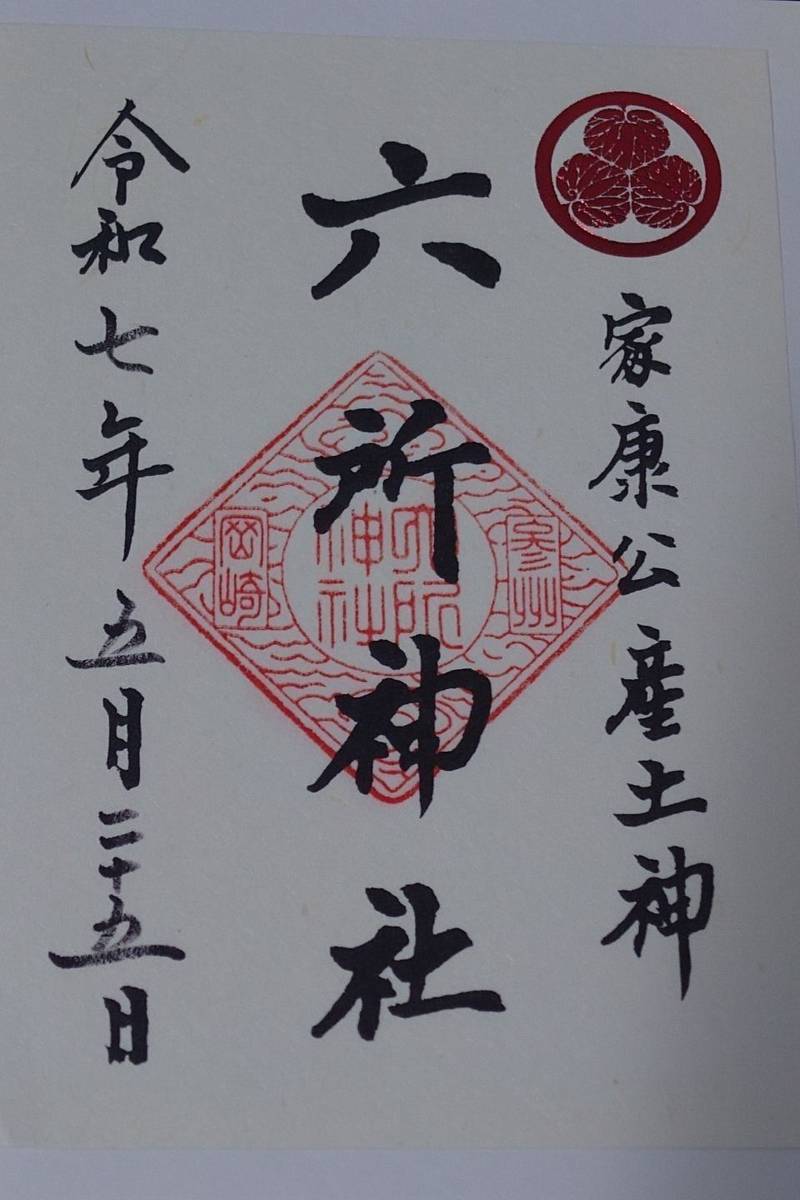 家康公産土神
六所神社
参州
六所
神社
岡崎
令和七年五月二十五日